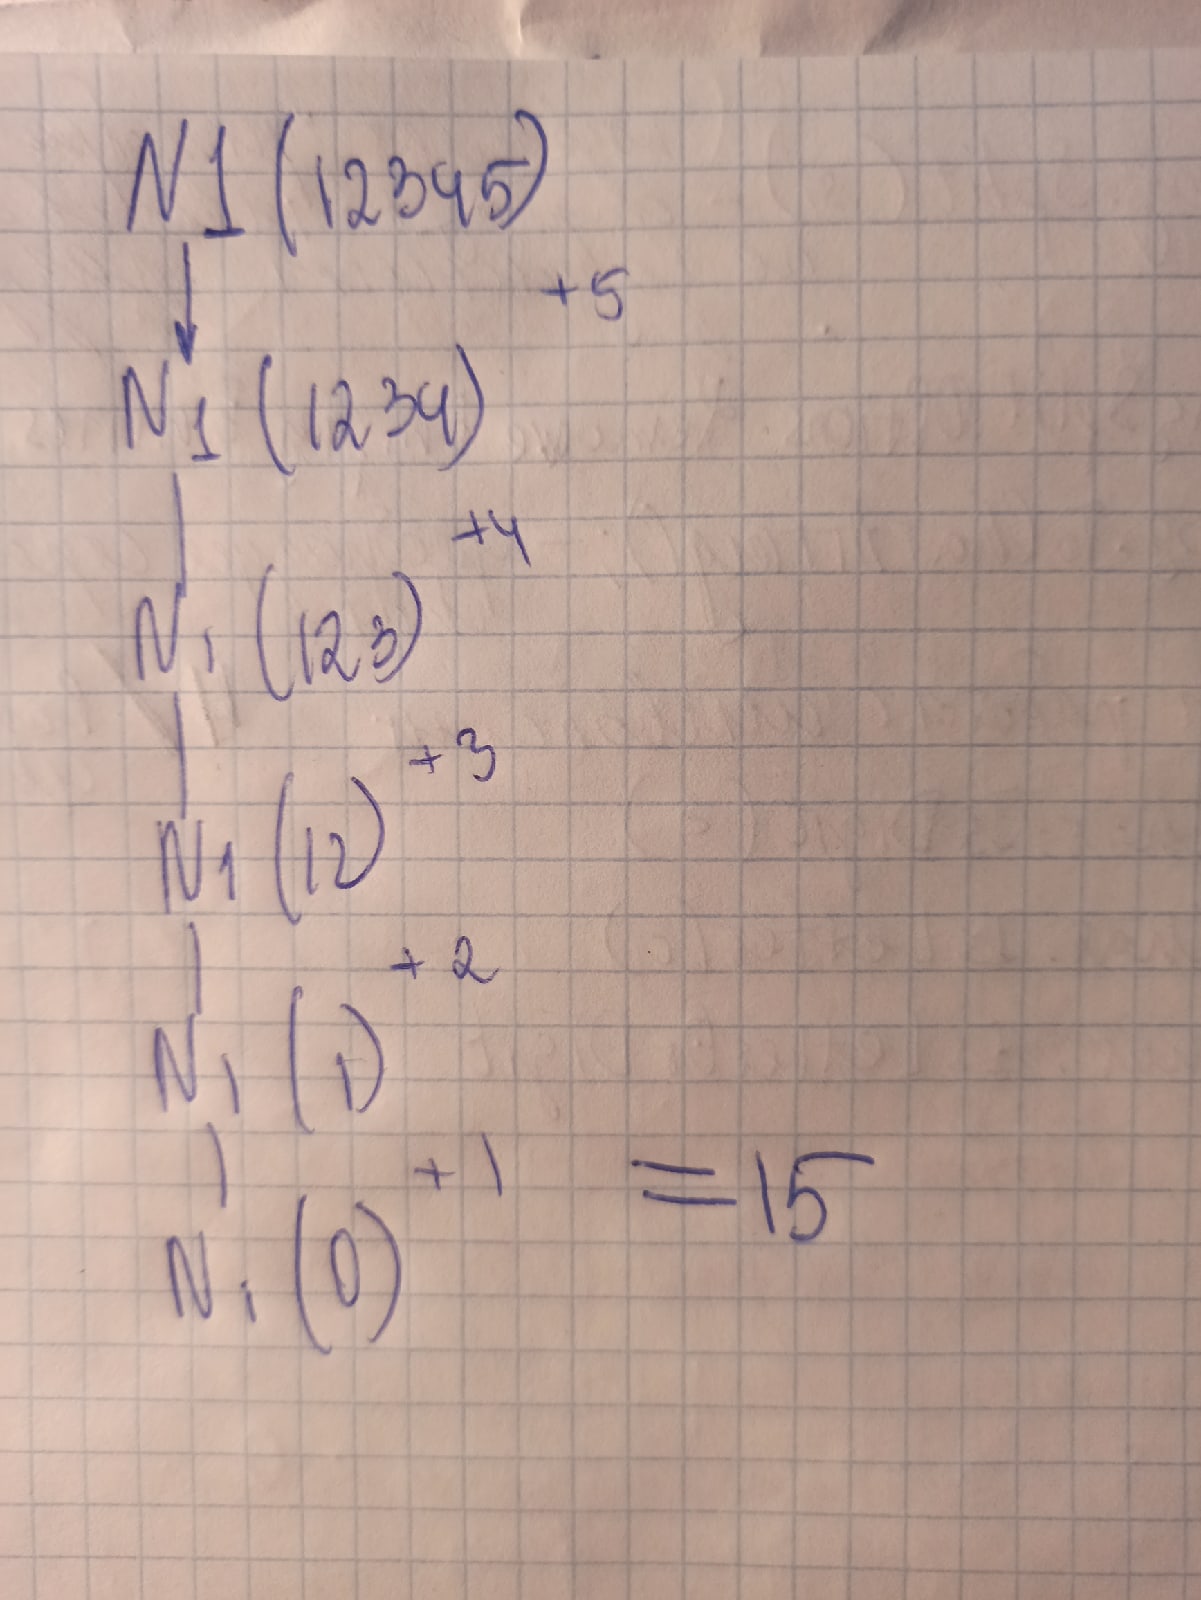 N1 (12345)
+5
N1 (1234)
+4
N1 (123)
+3
N1 (12)
+2
N1 (1)
+1 = 15
N1 (0)